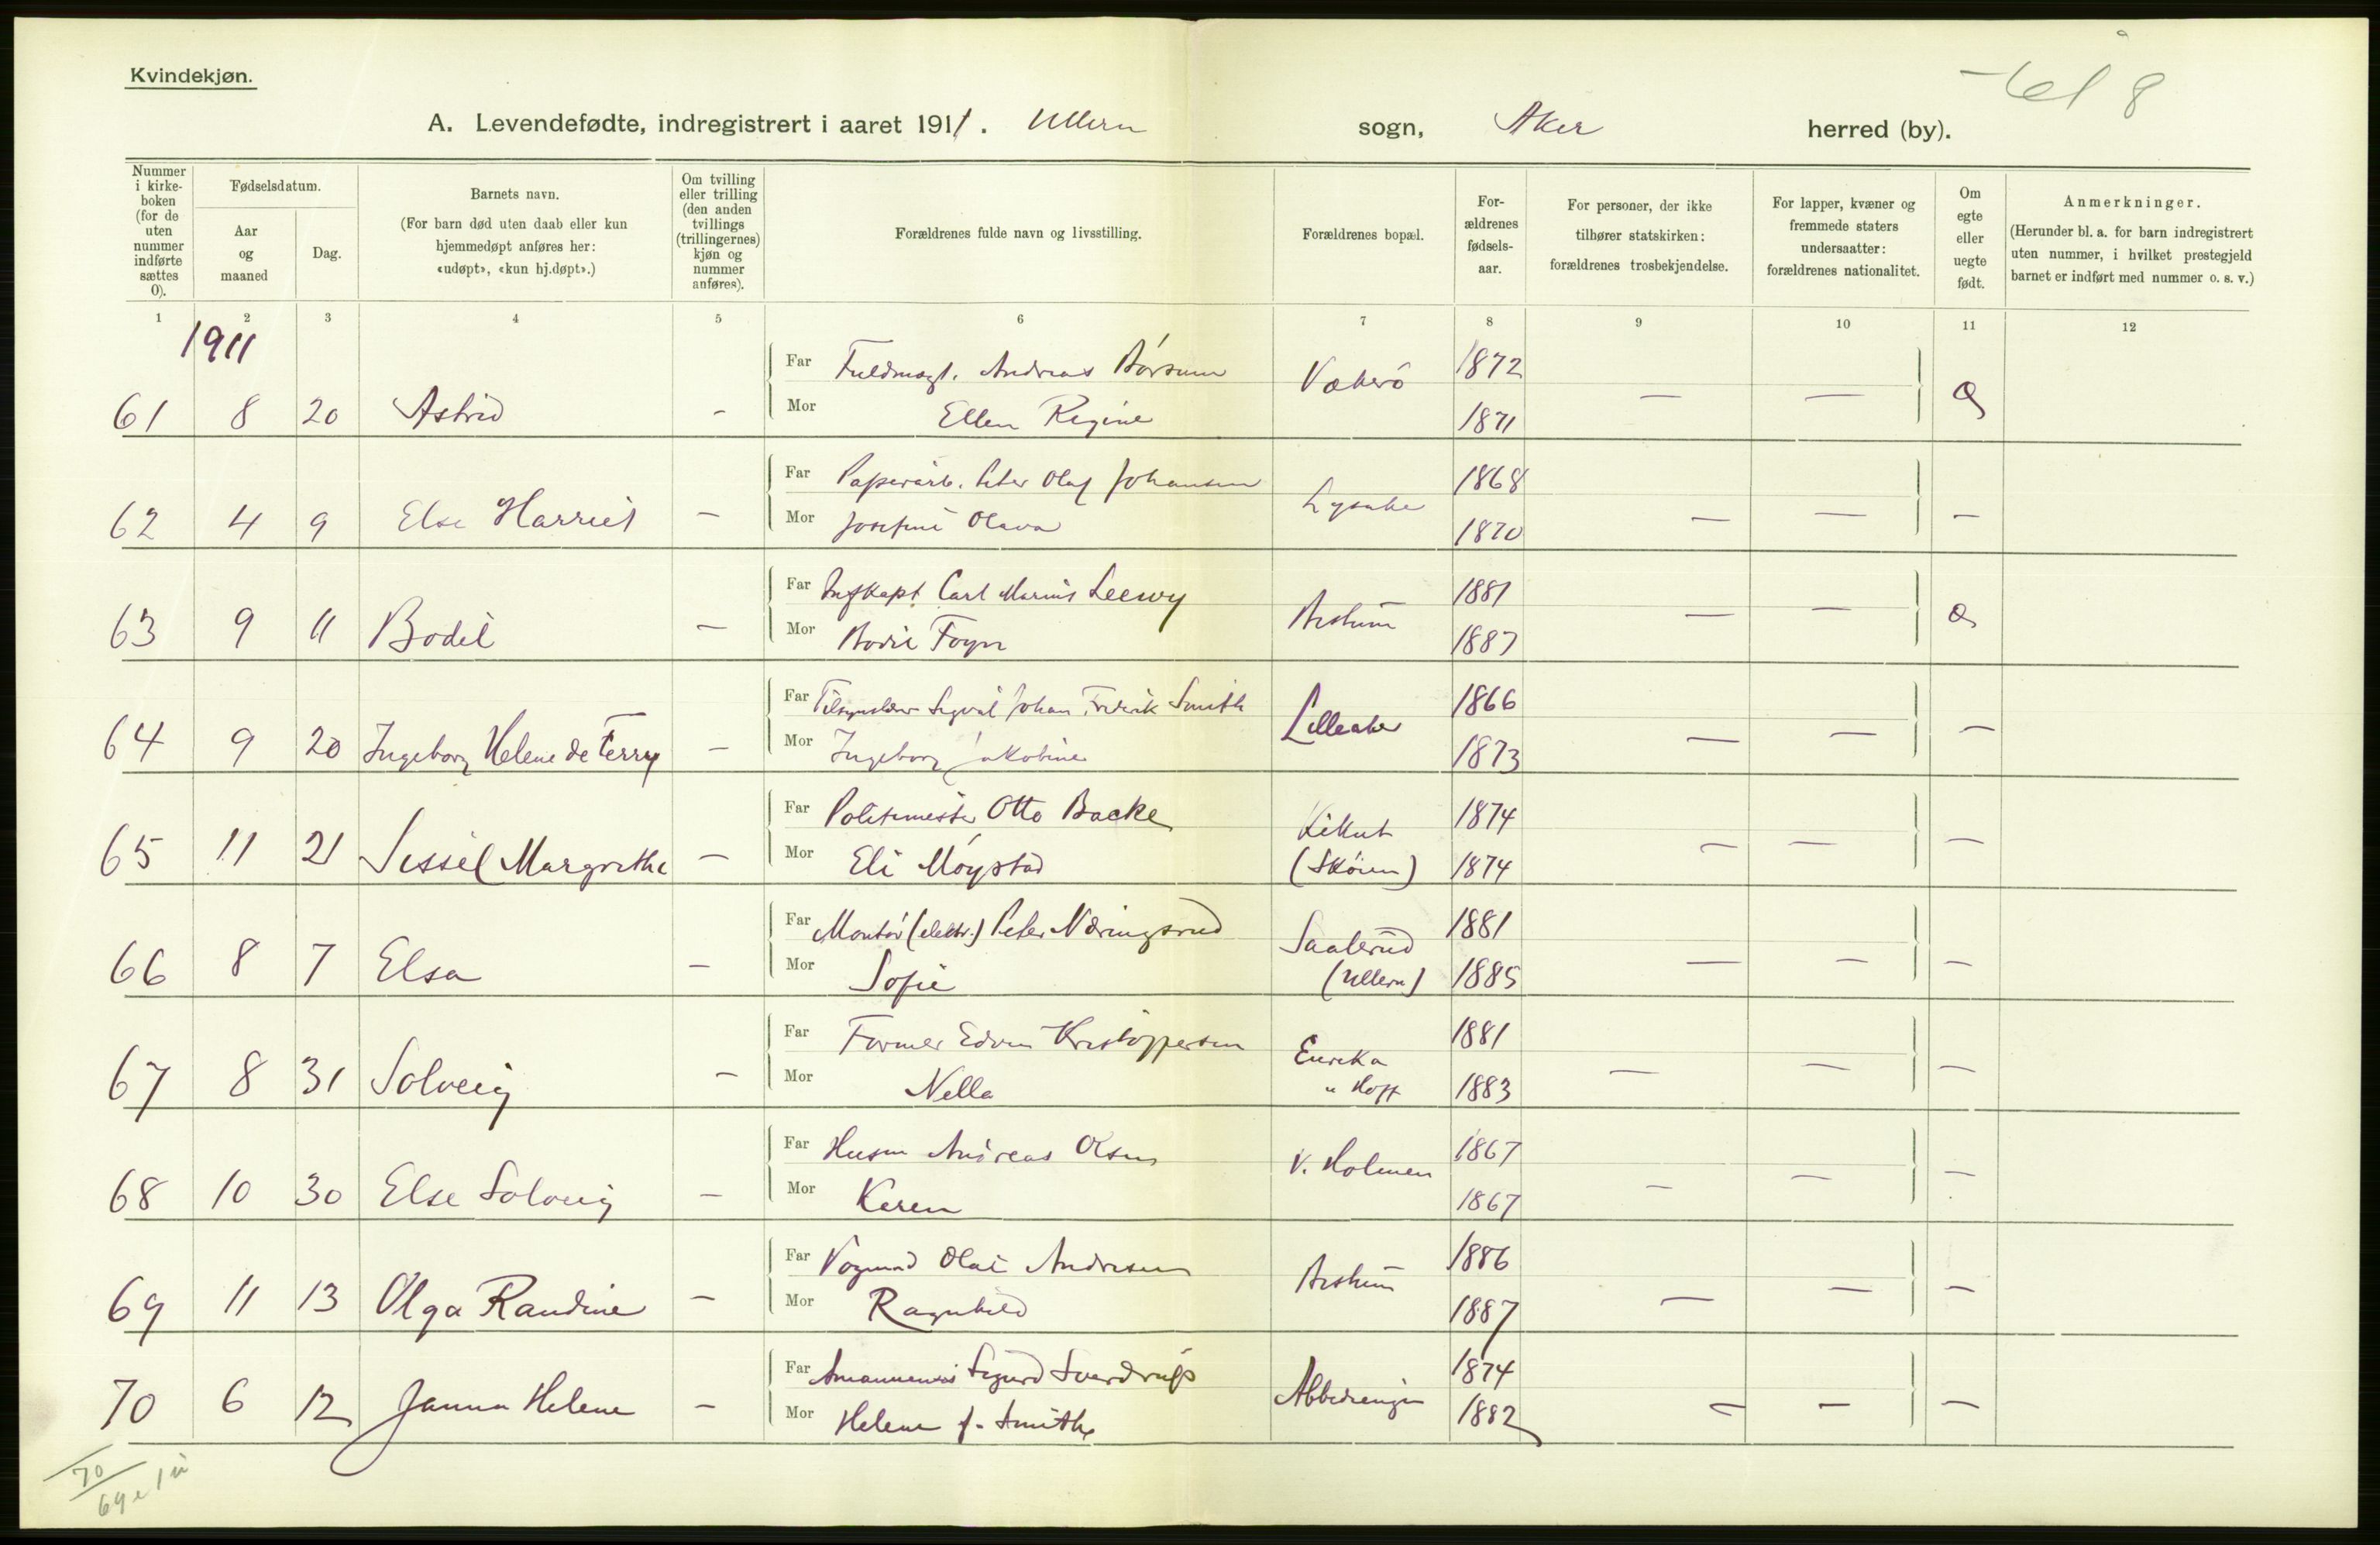 Kvindekjøn.
A. Levendefødte, indregistrert i aaret 1911. Ullern sogn, Aker herred (by).
Nummer i kirkeboken (for de uten nummer indførte sættes 0).
Fødselsdatum.
Aar og maaned
Dag.
Barnets navn.
(For barn død uten daab eller kun hjemmedøpt anføres her: «udøpt», «kun hj.døpt».)
Om tvilling eller trilling (den anden tvillings (trillingernes) kjøn og nummer anføres).
Forældrenes fulde navn og livsstilling.
Forældrenes bopæl.
Forældrenes fødselsaar.
For personer, der ikke tilhører statskirken: forældrenes trosbekjendelse.
For lapper, kvæner og fremmede staters undersaatter: forældrenes nationalitet.
Om egte eller uegte født.
Anmerkninger.
(Herunder bl. a. for barn indregistrert uten nummer, i hvilket prestegjeld barnet er indført med nummer o. s. v.)
1 2 3 4 5 6 7 8 9 10 11 12
1911
Far Fuldmægt. Andreas Børsum Vækerö 1872
61 8 20 Astrid - Mor Ellen Regine 1871 — —
Far Papirarb. Peter Olaf Johansen Lysaker 1868
62 4 9 Else Harriet - Mor Josefine Olava 1870 — — —
Far Carl Marius Leewy Bestum 1881
63 9 11 Bodil - Mor Bodil Foyn 1887 — —
Far Sigval Johan Fredrik Smith Lilleaker 1866
64 9 20 Ingeborg Helene de Ferry - Mor Ingeborg Jakobine 1873 — — —
Far Politimester Otto Backe Kikut 1874
65 11 21 Sissel Margrethe - Mor Eli Møystad (Skøien) 1874 — — —
Far Montør (elektr.) Peter Næringsrud Saalerud 1881
66 8 7 Elsa - Mor Sofie (Ullern) 1885 — — —
Far Former Edvin Kristoffersen Eureka 1881
67 8 31 Solveig - Mor Nella " Hoff 1883 — — —
Far Husm Andreas Olsen V. Holmen 1867
68 10 30 Else Solveig - Mor Karen 1867 — — —
Far Vognmd Olai Andresen Bestum 1886
69 11 13 Olga Randine - Mor Ragnhild 1887 — — —
Far Amanuensis Sigurd Sverdrup Abbediengen 1874
70 6 12 Janna Helene - Mor Helene f. Smith 1882 — — —
70
69 e 1 u